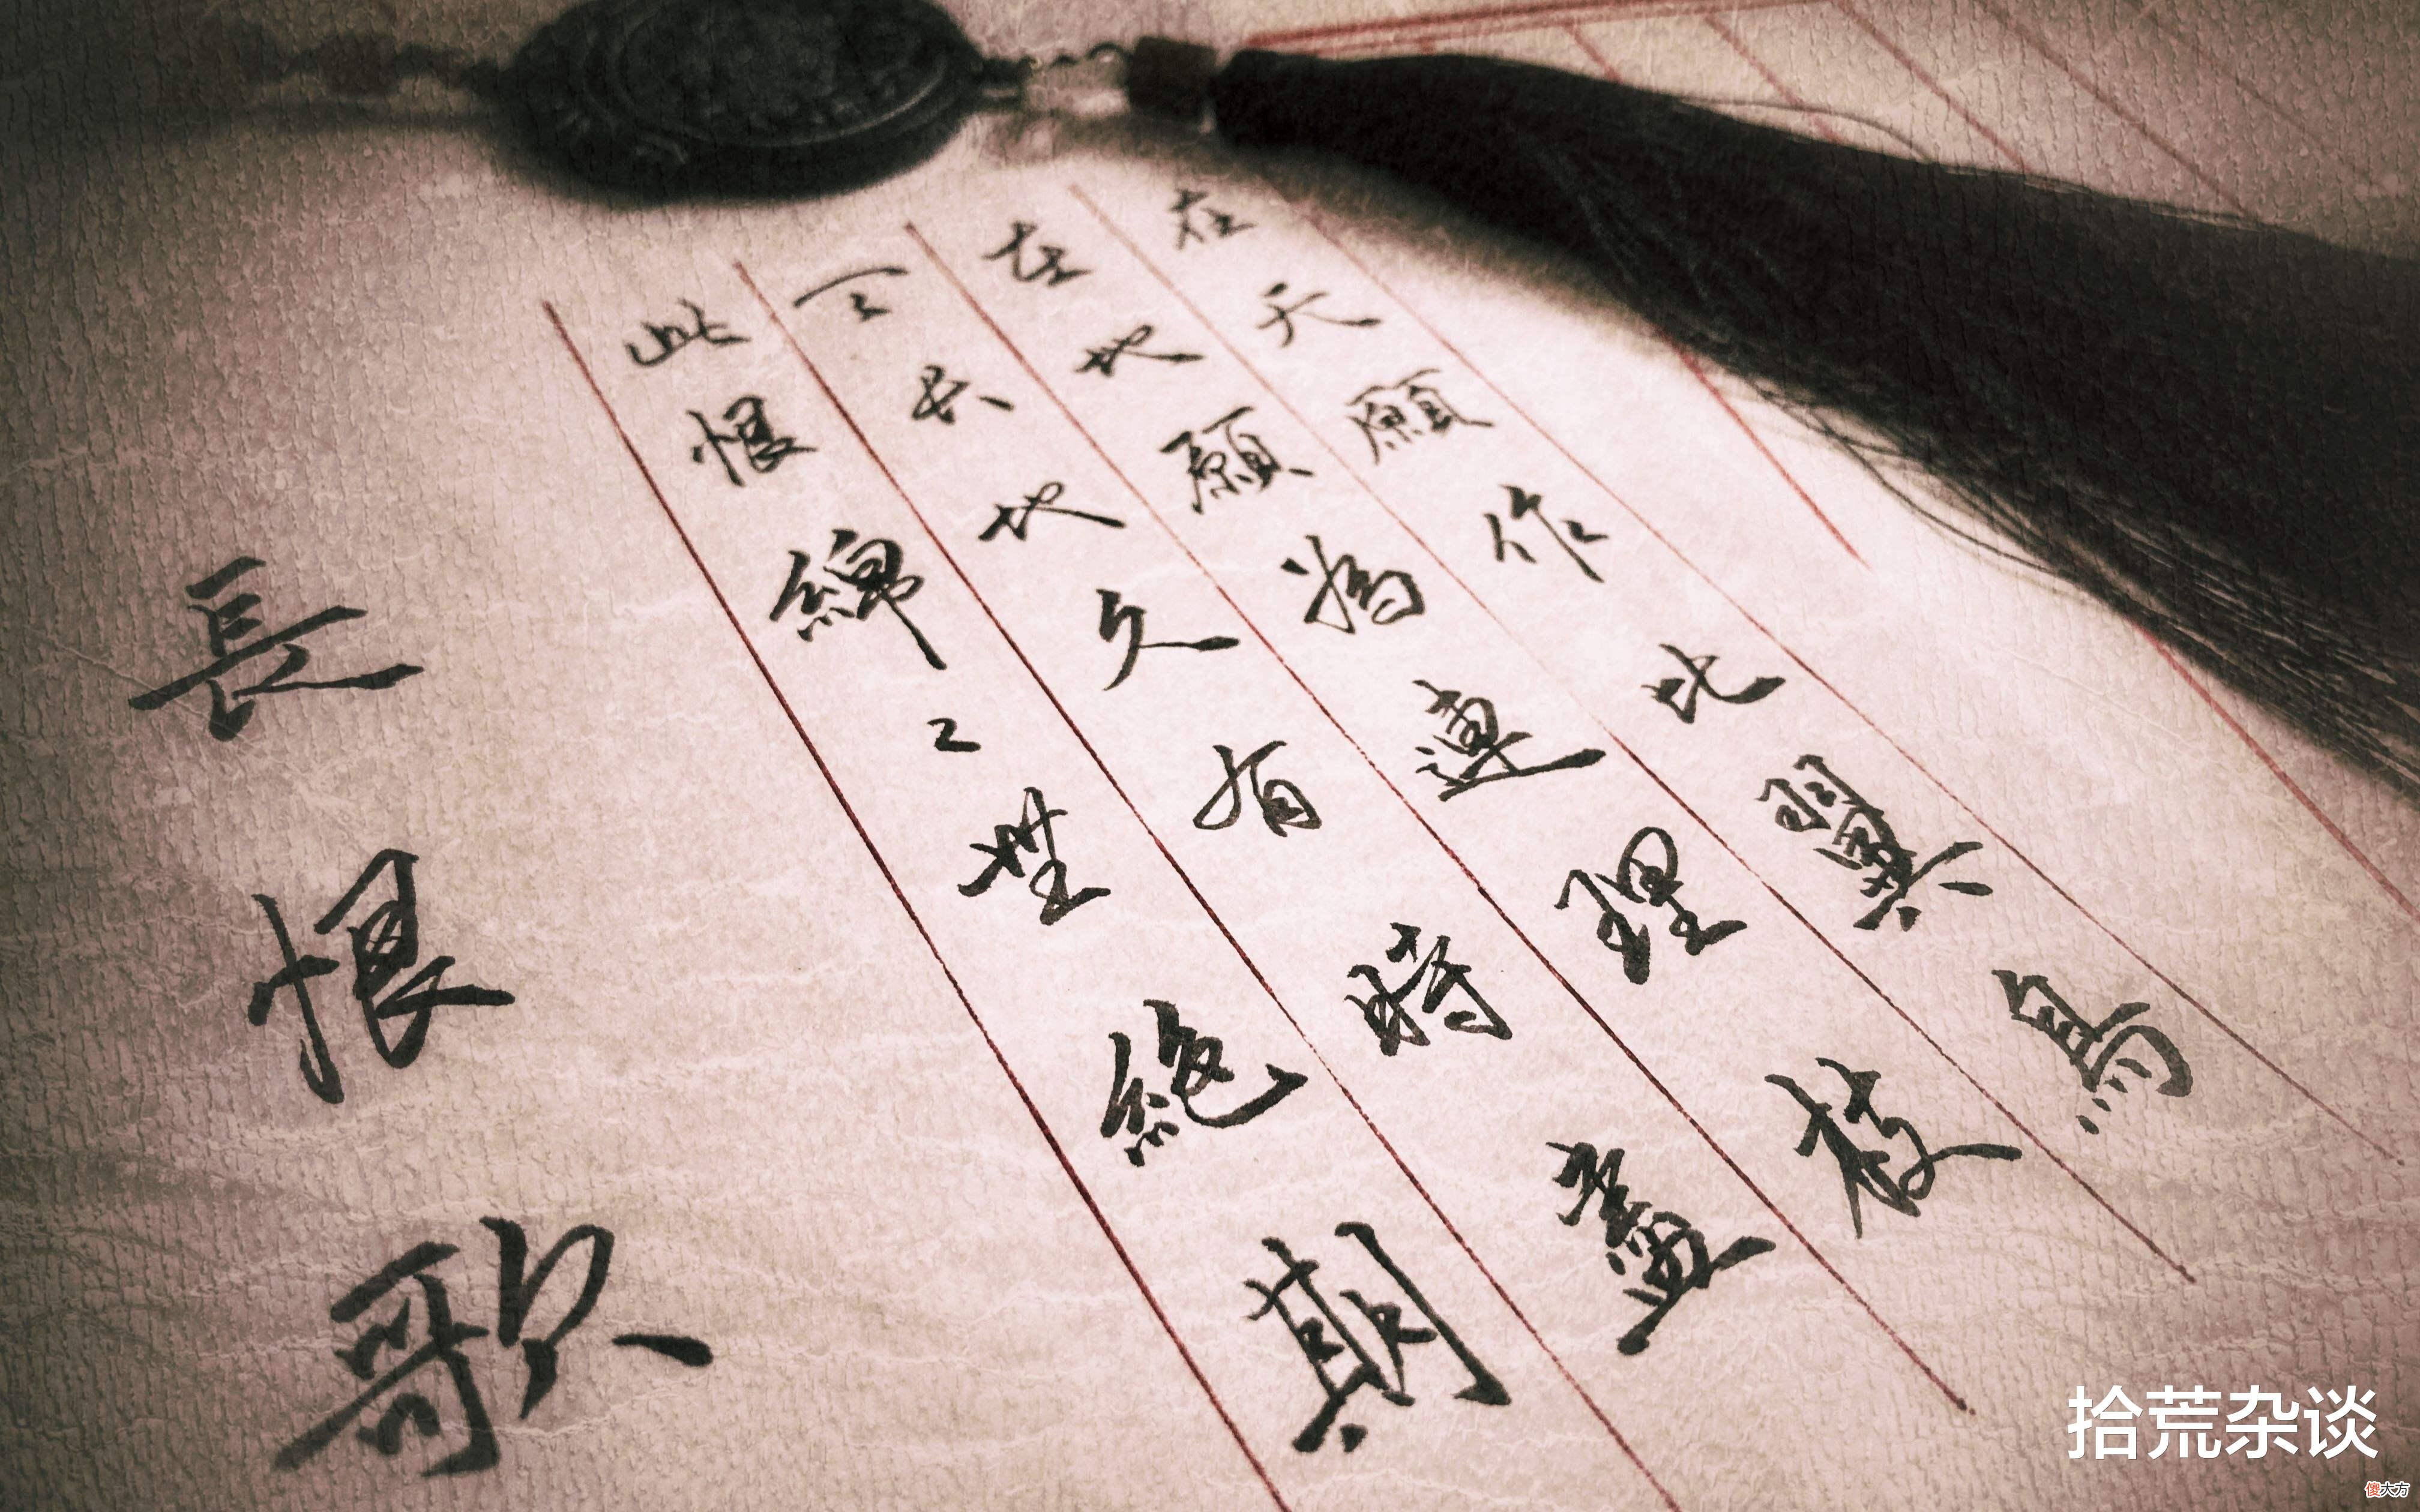 在天願作比翼鳥
在地願為連理枝
天長地久有時盡
此恨綿々無絕期
長恨歌
拾荒杂谈
傻大方